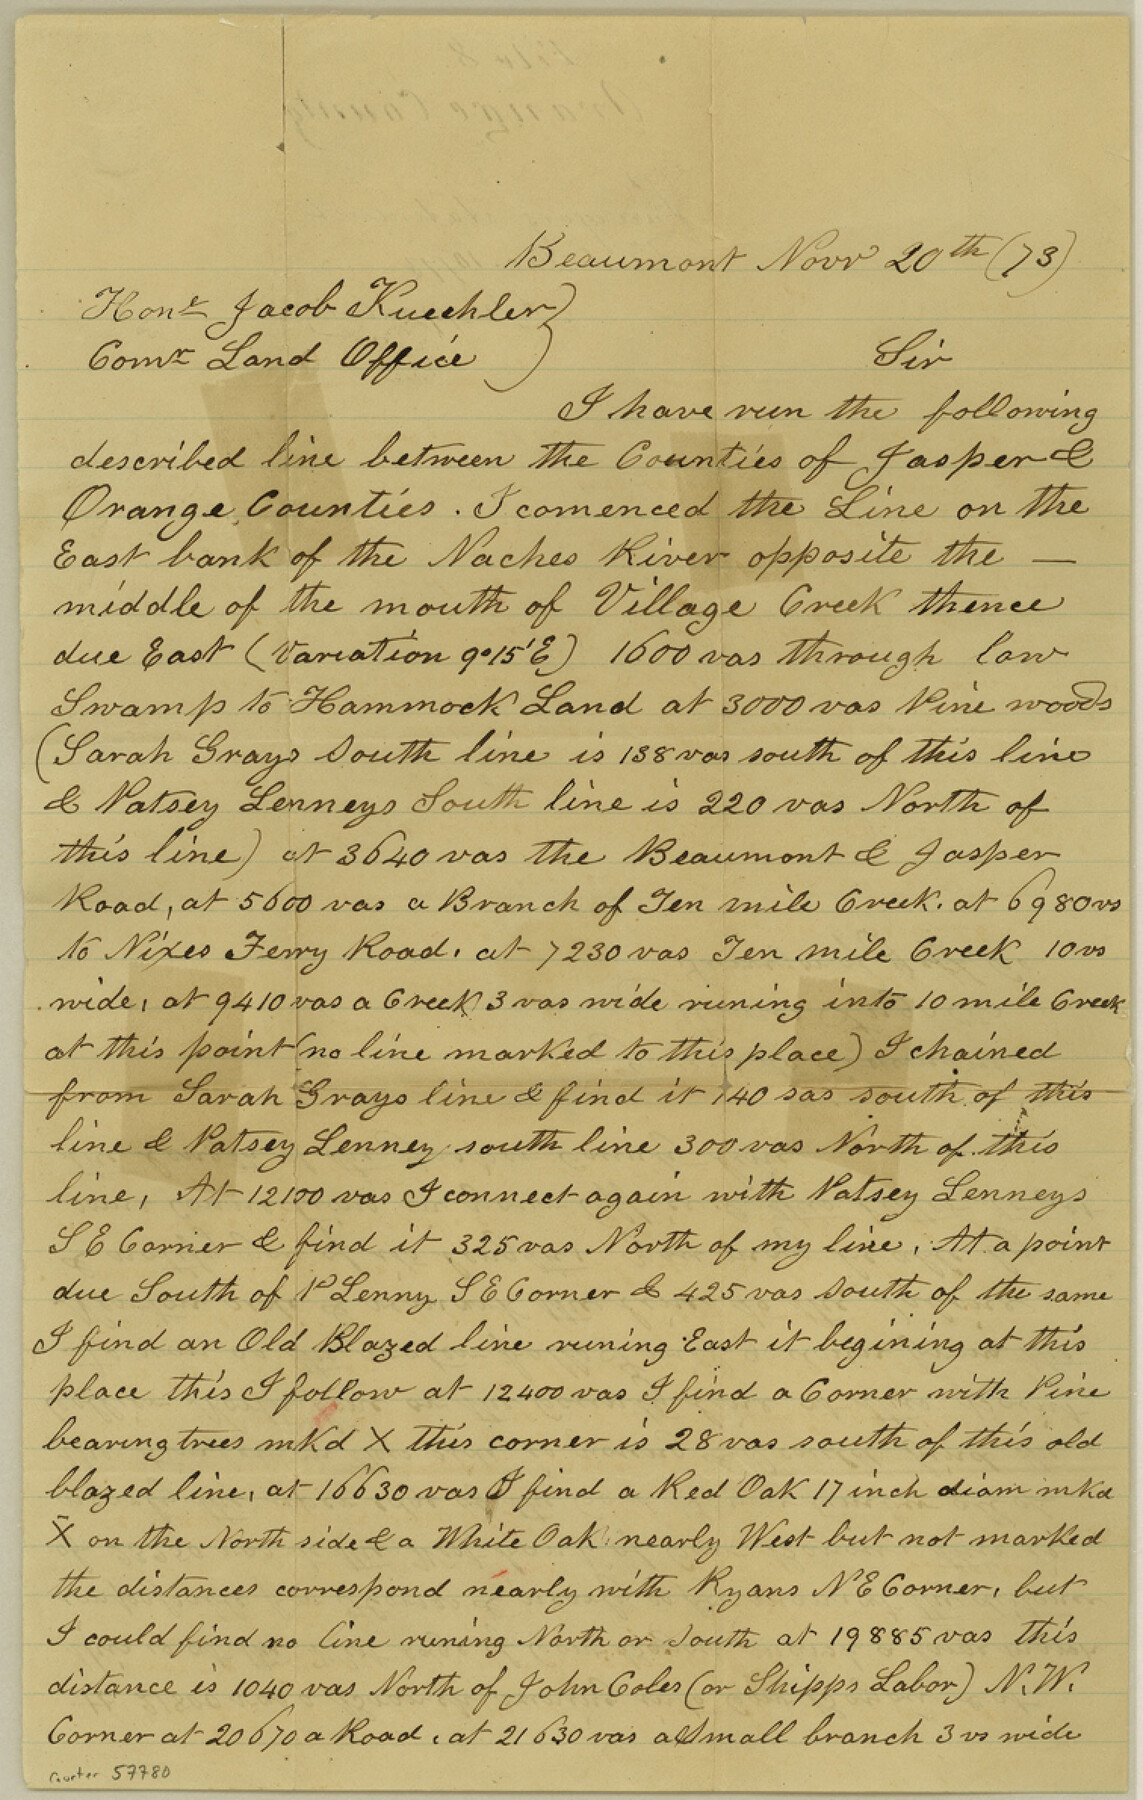 Beaumont Novr 20th (73)
Honr Jacob Kuechler
Comr Land Office
Sir
I have run the following
described line between the Counties of Jasper &
Orange Counties. I comenced the Line on the
East bank of the Naches River opposite the —
middle of the mouth of Village Creek thence
due East (Variation 9°15'E) 1600 vas through low
Swamp to Hammock Land at 3000 vas Pine woods
(Sarah Grays South line is 138 vas south of this line
& Patsey Lenneys South line is 220 vas North of
this line) at 3640 vas the Beaumont & Jasper
Road, at 5600 vas a Branch of Ten mile Creek. at 6980 vs
to Nixes Ferry Road. at 7230 vas Ten mile Creek 10 vs
wide, at 9410 vas a Creek 3 vas wide runing into 10 mile Creek
at this point (no line marked to this place) I chained
from Sarah Grays line & find it 140 sas south of this
line & Patsey Lenney south line 300 vas North of this
line, At 12100 vas I connect again with Patsey Lenneys
S E Corner & find it 325 vas North of my line. At a point
due South of P Lenny S E Corner & 425 vas South of the same
I find an Old Blazed line runing East it begining at this
place this I follow at 12400 vas I find a Corner with Pine
bearing trees mkd X this corner is 28 vas south of this old
blazed line, at 16630 vas I find a Red Oak 17 inch diam mkd
X on the North side & a White Oak nearly West but not marked
the distances correspond nearly with Ryans N E Corner, but
I could find no line runing North or South at 19885 vas this
distance is 1040 vas North of John Coles (or Shipps Labor) N.W.
Corner at 20670 a Road. at 21630 vas a Small branch 3 vs wide
counter 57780
File 8
Orange County